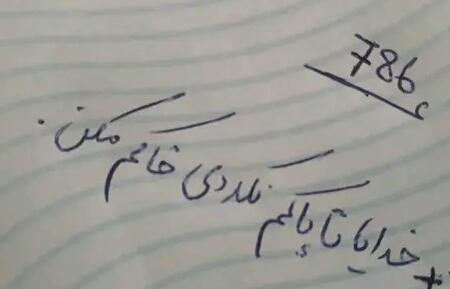 786
خدایا تا پاکم نکردی خاکم مکن.